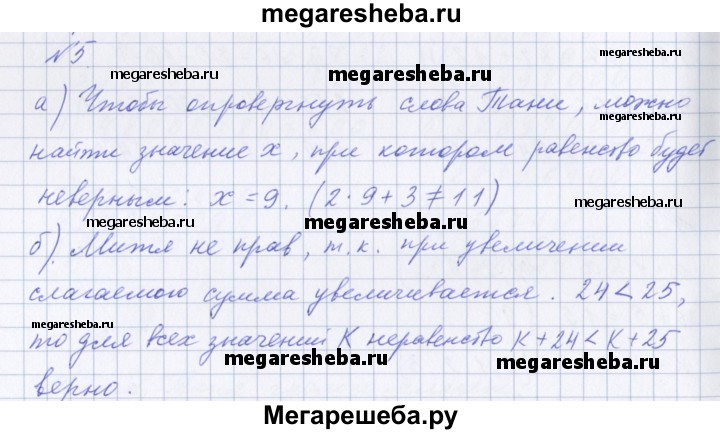 megaresheba.ru
№5.
megaresheba.ru
megaresheba.ru
а) Чтобы опровергнуть слова Тани, можно
megaresheba.ru
найти значение x, при котором равенство будет
неверным: x = 9. (2 · 9 + 3 ≠ 11)
megaresheba.ru
megaresheba.ru
megaresheba.ru
б) Митя не прав, т.к. при увеличении
слагаемого сумма увеличивается. 24 < 25,
megaresheba.ru
то для всех значений K неравенство K + 24 < K + 25
megaresheba.ru
megaresheba.ru
верно.
Мегарешеба.ру